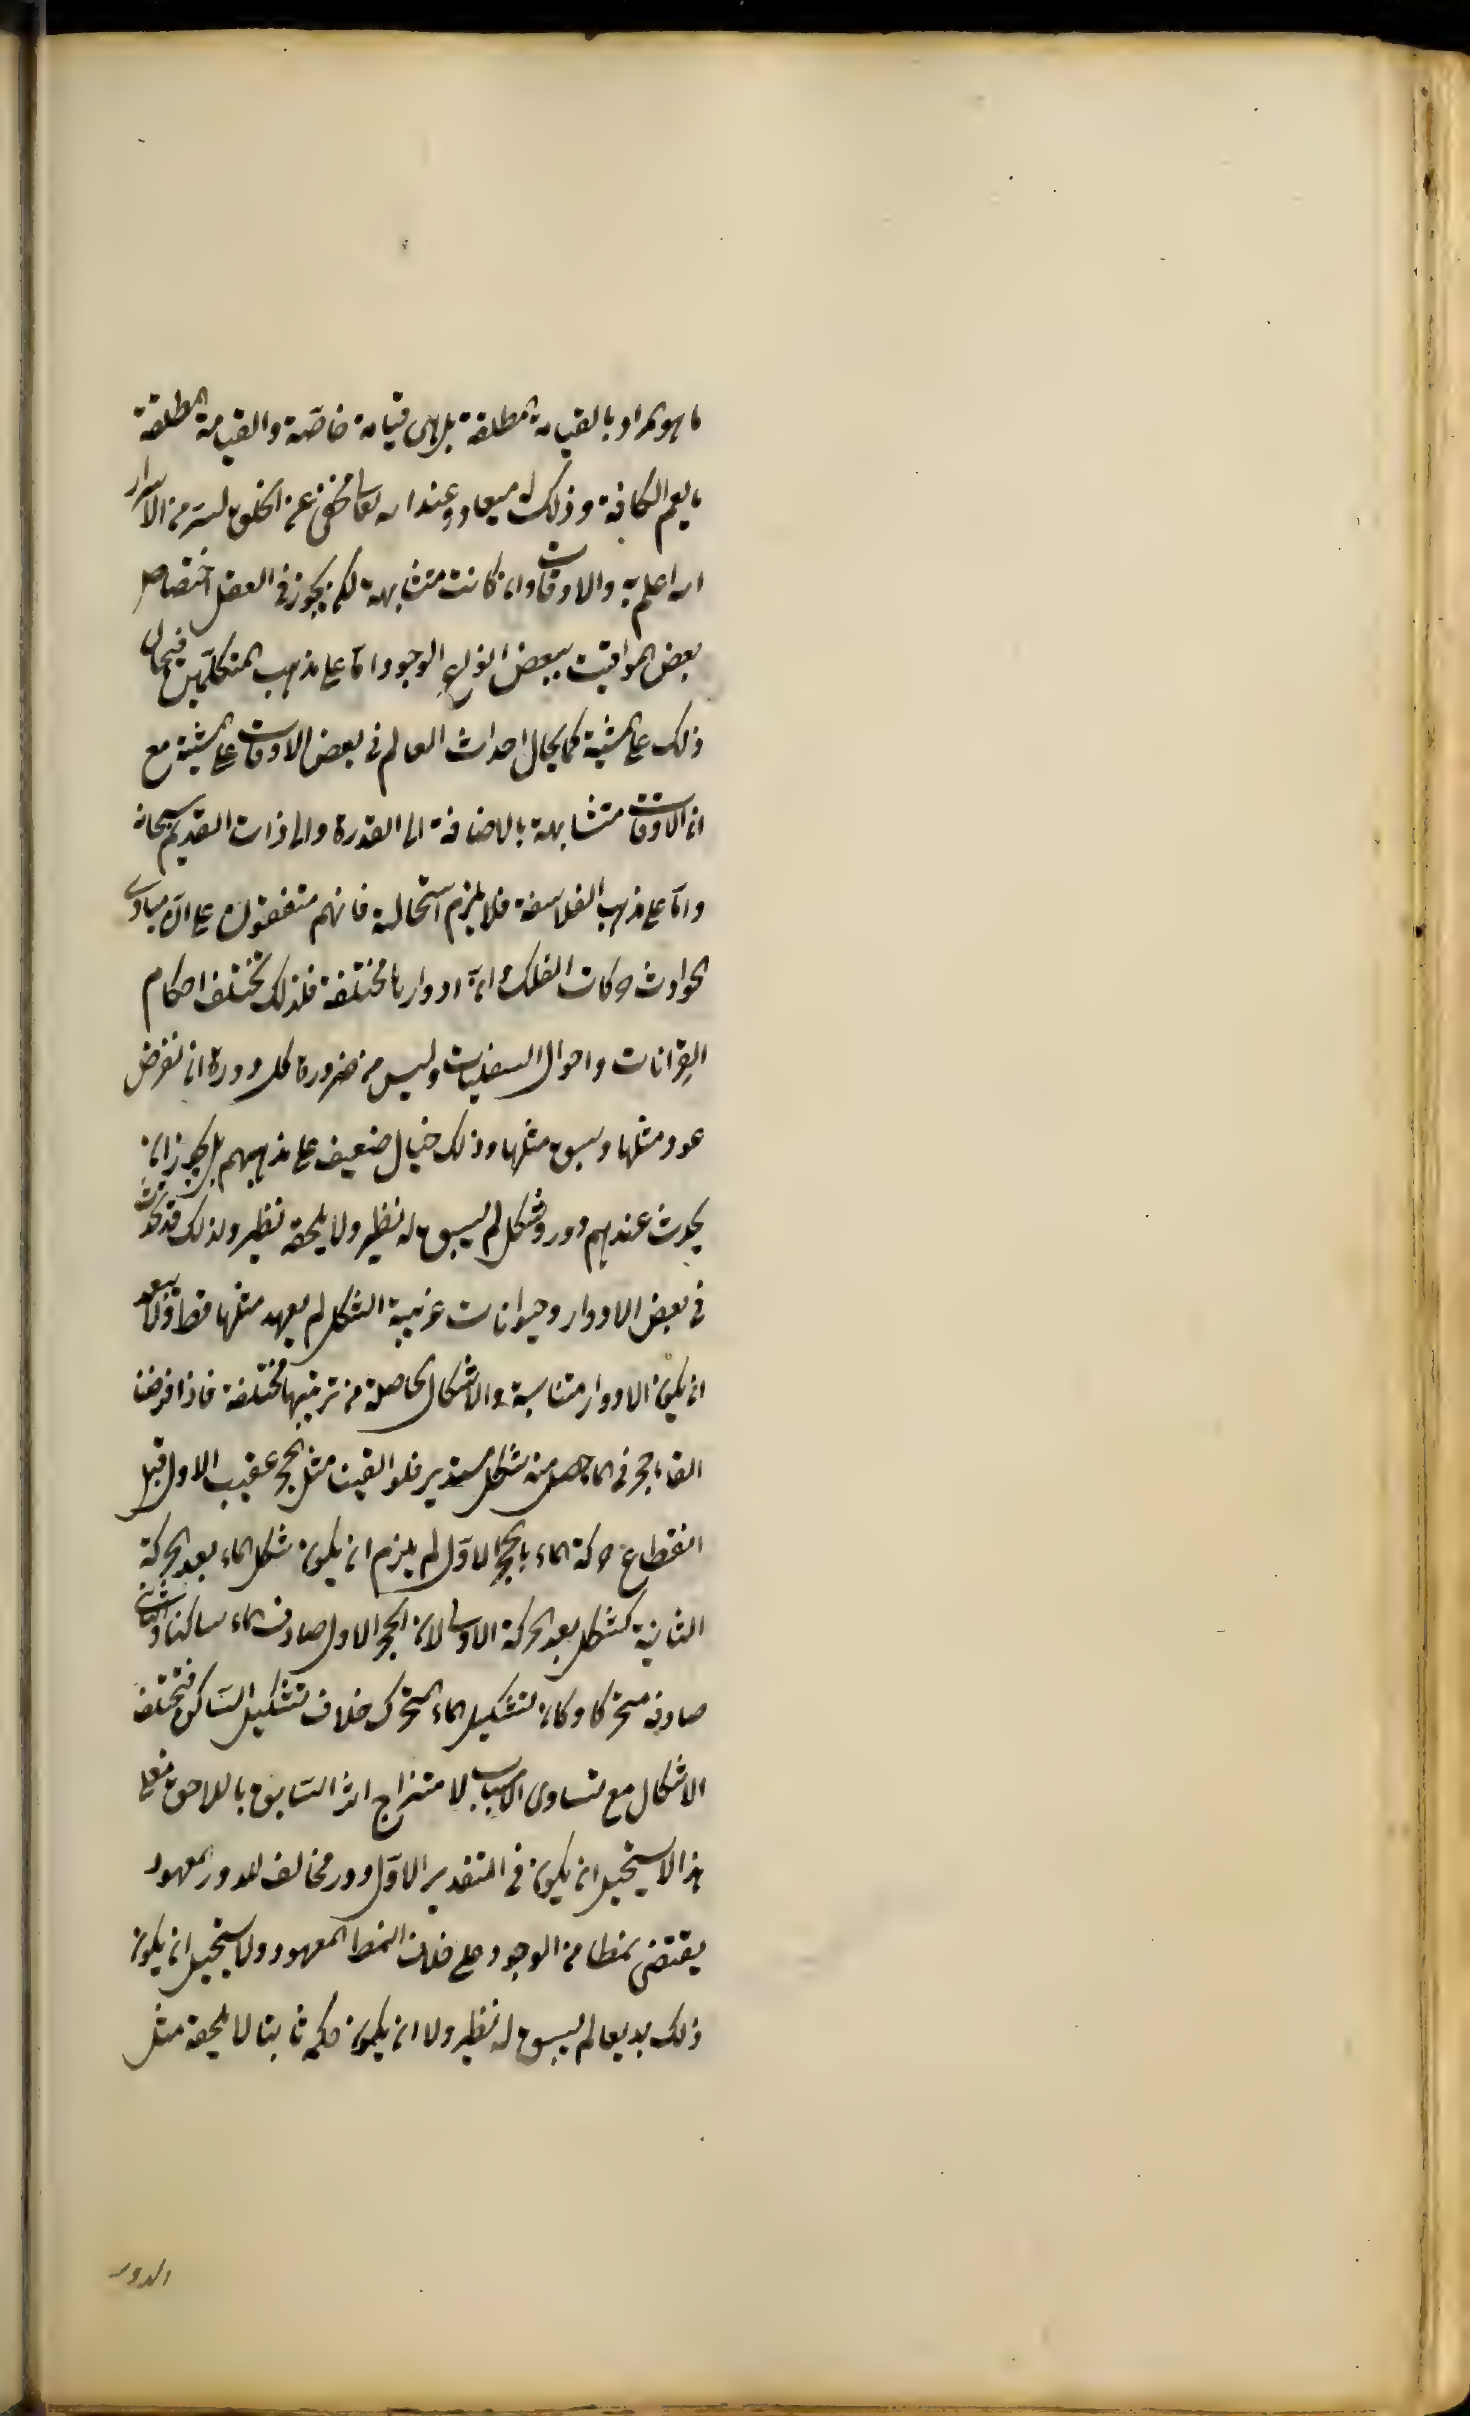 ما هو المراد بالقيامة المطلقة بل هى قيامة خاصّة والقيامة المطلقة
ما يعم الكافة وذلك له ميعاد وعند الله تعالى مخفى عن الخلق لسر من الاسرار
الله اعلم به والاوقات وان كانت متشابهة لكن يجوز فى العقل اختصاص
بعض المواقيت ببعض انواع الوجود امّا على مذهب المتكلّمين فيحال
ذلك على المشية كما يحال احداث العالم فى بعض الاوقات على المشية مع
ان الاوقات متشابهة بالاضافة الى القدرة والى ذات القديم سبحانه
وامّا على مذهب الفلاسفة فلا يلزم استحالته فانهم متفقون على انّ مبادى
الحوادث حركات الفلك وانّ ادوارها مختلفة فلذلك تختلف احكام
القرانات واحوال السفليات وليس من ضرورة كل دورة ان نفرض
عود مثلها وسبق مثلها وذلك خيال ضعيف على مذهبهم بل يجوز ان
يحدث عندهم دور وشكل لم يسبق له نظير ولا يلحقه نظير ولذلك قد يحدث
فى بعض الادوار وحيوانات غريبة الشكل لم يعهد مثلها قط ولا يبعد
ان يكون الادوار متناسبة والاشكال الحاصلة من ترتيبها مختلفة فاذا فرضنا
القاء حجر فى الماء حصل منه شكل مستدير فلو القينا مثل الحجر عقيب الاول قبل
انقطاع حركة الماء بالحجر الاوّل لم يلزم ان يكون شكل الماء بعد الحركة
الثانية كشكل بعد الحركة الاولى لان الحجر الاول صادف الماء ساكنا والثانى
صادفه متحركا وكان تشكيل الماء المتحرك خلاف تشكيل السّاكن فتختلف
الاشكال مع تساوى الاسباب لامتزاج اثر السّابق باللاحق فعلى
هذا لا يستحيل ان يكون فى التقدير الاوّل دور مخالف للدور المعهود
يقتضى نمطا من الوجود على خلاف النمط المعهود ولا يستحيل ان يكون
ذلك بديعا لم يسبق له نظير ولا ان يكون حكمه ثابتا لا يلحقه مثل
الدور